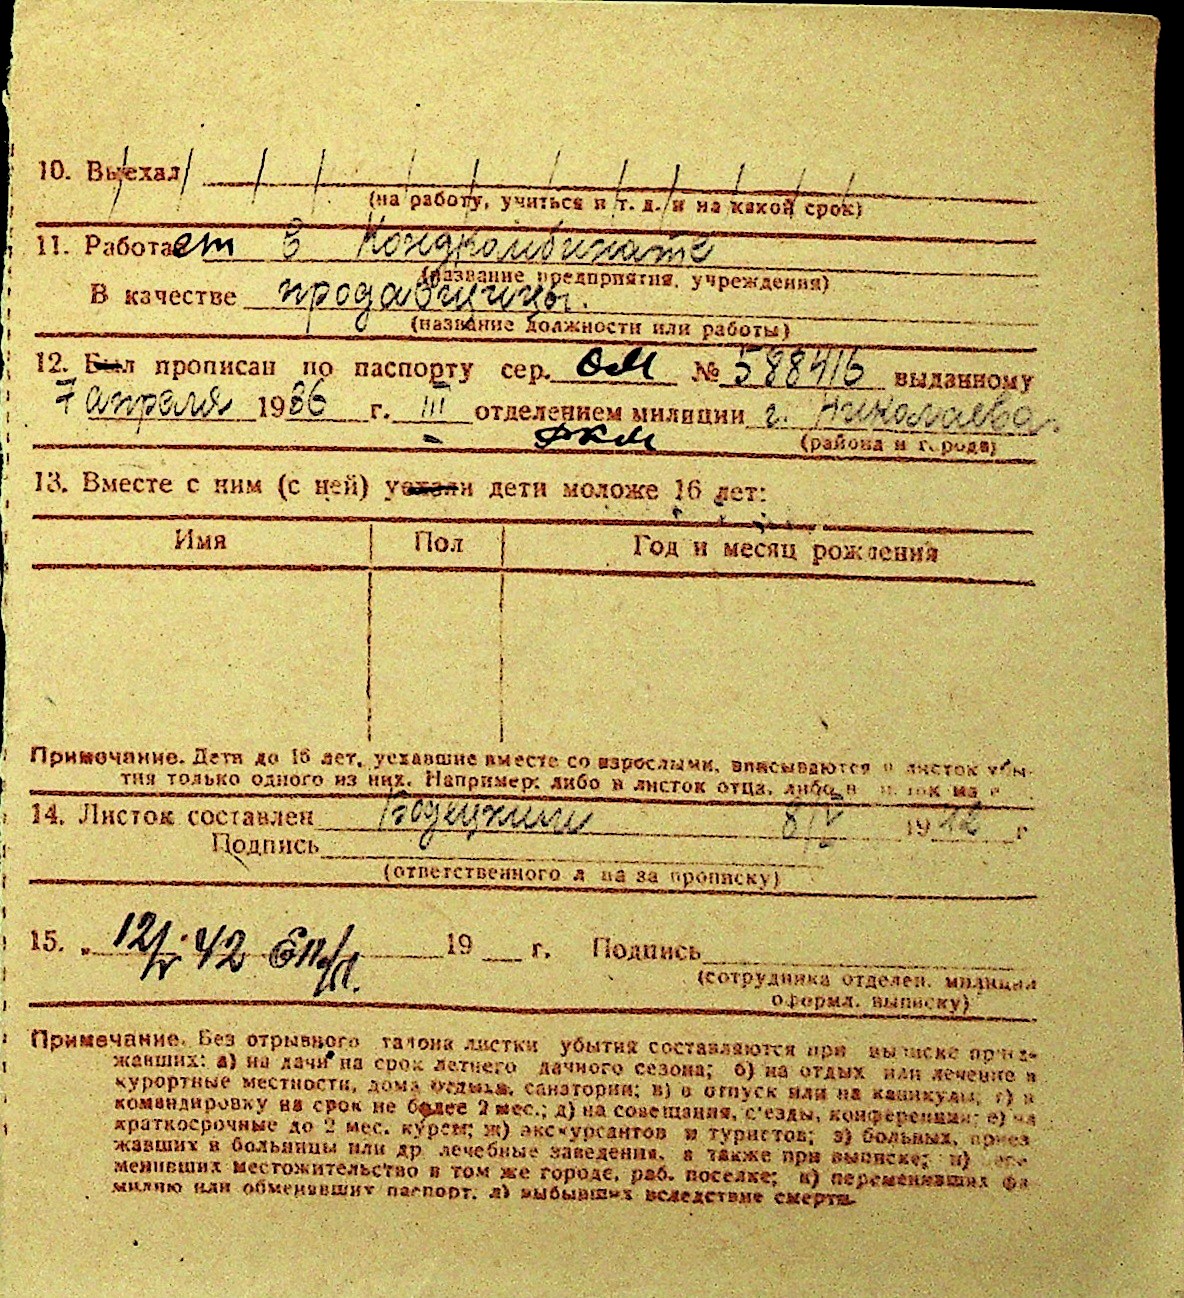 10. Выехал
(на работу, учиться и т. д. и на какой срок)
11. Работает в Кондкомбинате
(название предприятия, учреждения)
В качестве продавщицы.
(название должности или работы)
12. Был прописан по паспорту сер. ОМ № 588416 выданному
7 апреля 1936 г. III отделением милиции г. Николаева.
РКМ (района и города)
13. Вместе с ним (с ней) уехали дети моложе 16 лет:
Имя Пол Год и месяц рождения
Примечание. Дети до 16 лет, уехавшие вместе со взрослыми, вписываются в листок убы-
тия только одного из них. Например: либо в листок отца, либо в листок ма
14. Листок составлен 8/IV 1942 г
Подпись
(ответственного лица за прописку)
15. „ 12/V 42 19 г. Подпись
(сотрудника отделен. милиции
оформл. выписку)
Примечание. Без отрывного талона листки убытия составляются при выписке приез-
жавших: а) на дачи на срок летнего дачного сезона; б) на отдых или лечение в
курортные местности, дома отдыха, санатории; в) в отпуск или на каникулы; г) в
командировку на срок не более 2 мес.; д) на совещания, с'езды, конференции; е) на
краткосрочные до 2 мес. курсы; ж) экскурсантов и туристов; з) больных, приез
жавших в больницы или др. лечебные заведения, а также при выписке; и) пере-
менивших местожительство в том же городе, раб. поселке; к) переменивших фа
милию или обменявших паспорт, л) выбывших вследствие смерти.